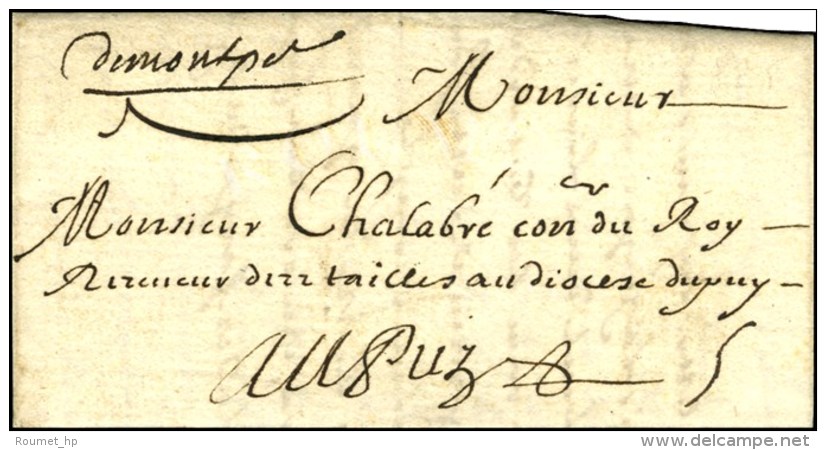 demontpel
Monsieur
Monsieur Chalabré con.er du Roy
Receueur dess tailles au diocese dupuy
AuPuy 5
Roumet_hp
delcampe.net